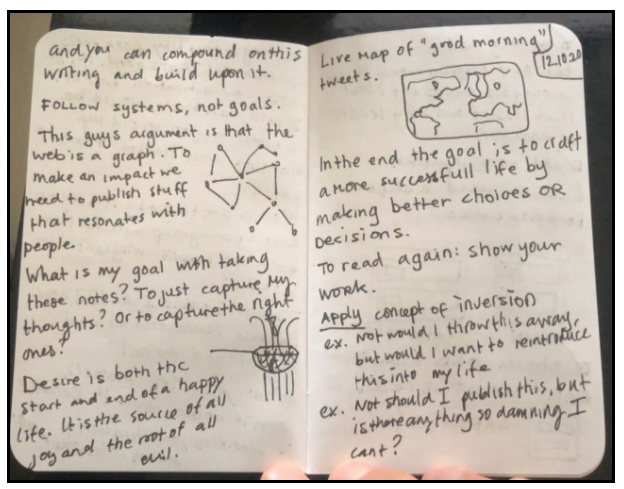 and you can compound on this
writing and build upon it.
Follow systems, not goals.
This guys argument is that the
web is a graph. To
make an impact we
need to publish stuff
that resonates with
people.
What is my goal with taking
these notes? To just capture my
thoughts? Or to capture the right
ones?
Desire is both the
start and end of a happy
life. It is the source of all
joy and the root of all
evil.
Live map of "good morning"
tweets.
12.10.20
In the end the goal is to craft
a more successfull life by
making better choices OR
Decisions.
To read again: show your
work.
Apply concept of inversion
ex. Not would I throw this away,
but would I want to reintroduce
this into my life
ex. Not should I publish this, but
is there anything so damning I
cant?